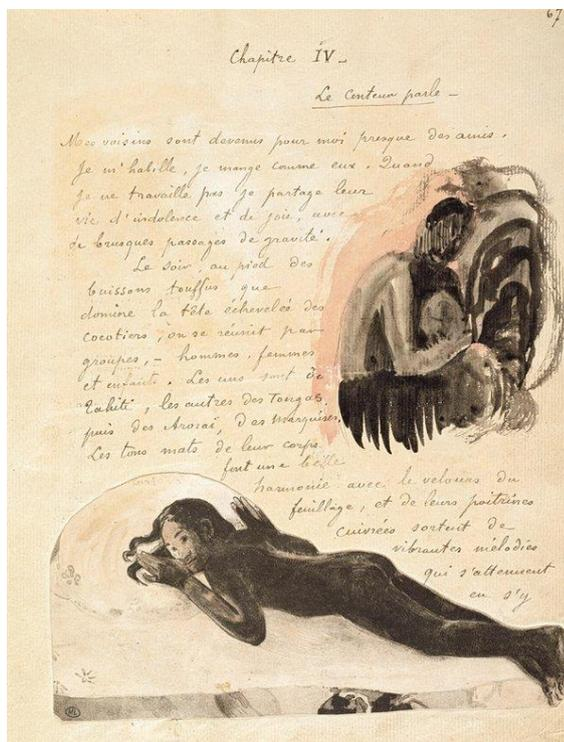 67
Chapitre IV_
Le Conteur parle_
Mes voisins sont devenus pour moi presque des amis.
Je m'habille, je mange comme eux. Quand
je ne travaille pas je partage leur
vie d'indolence et de joie, avec
de brusques passages de gravité.
Le soir au pied des
buissons touffus que
domine la tête échevelée des
cocotiers, on se réunit par
groupes, - hommes, femmes
et enfants. Les uns sont de
Tahiti, les autres des Tongas,
puis des Arorai, des Marquises.
Les tons mats de leur corps
font une belle
harmonie avec le velours du
feuillage, et de leurs poitrines
cuivrées sortent de
vibrantes mélodies
qui s'attenuent
en s'y